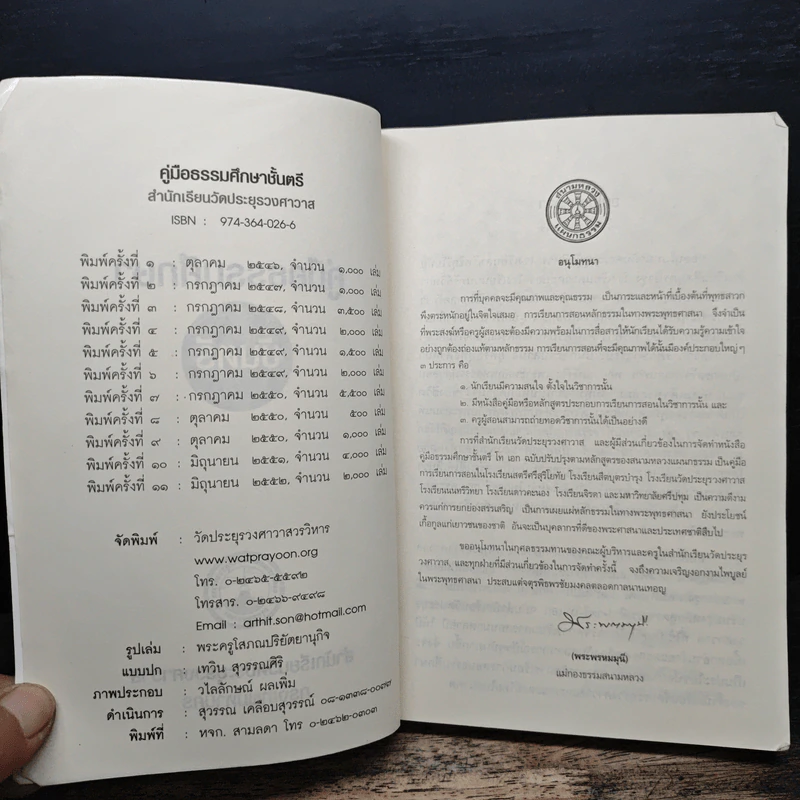 คู่มือธรรมศึกษาชั้นตรี
สำนักเรียนวัดประยุรวงศาวาส
ISBN : 974-364-026-6
พิมพ์ครั้งที่ ๑ : ตุลาคม ๒๕๔๖, จำนวน ๑,๐๐๐ เล่ม
พิมพ์ครั้งที่ ๒ : กรกฎาคม ๒๕๔๗, จำนวน ๑,๐๐๐ เล่ม
พิมพ์ครั้งที่ ๓ : กรกฎาคม ๒๕๔๘, จำนวน ๓,๕๐๐ เล่ม
พิมพ์ครั้งที่ ๔ : กรกฎาคม ๒๕๔๙, จำนวน ๒,๐๐๐ เล่ม
พิมพ์ครั้งที่ ๕ : กรกฎาคม ๒๕๔๙, จำนวน ๑,๕๐๐ เล่ม
พิมพ์ครั้งที่ ๖ : กรกฎาคม ๒๕๔๙, จำนวน ๒,๐๐๐ เล่ม
พิมพ์ครั้งที่ ๗ : กรกฎาคม ๒๕๕๐, จำนวน ๕,๕๐๐ เล่ม
พิมพ์ครั้งที่ ๘ : ตุลาคม ๒๕๕๐, จำนวน ๕๐๐ เล่ม
พิมพ์ครั้งที่ ๙ : ตุลาคม ๒๕๕๐, จำนวน ๑,๐๐๐ เล่ม
พิมพ์ครั้งที่ ๑๐ : มิถุนายน ๒๕๕๑, จำนวน ๔,๐๐๐ เล่ม
พิมพ์ครั้งที่ ๑๑ : มิถุนายน ๒๕๕๒, จำนวน ๒,๐๐๐ เล่ม
จัดพิมพ์ : วัดประยุรวงศาวาสวรวิหาร
www.watprayoon.org
โทร. ๐-๒๔๖๕-๕๕๙๒
โทรสาร. ๐-๒๔๖๖-๙๔๙๘
Email : arthit.son@hotmail.com
รูปเล่ม : พระครูโสภณปริยัตยานุกิจ
แบบปก : เทวิน สุวรรณศิริ
ภาพประกอบ : วไลลักษณ์ ผลเพิ่ม
ดำเนินการ : สุวรรณ เคลือบสุวรรณ์ ๐๘-๑๓๓๘-๐๐๗๗
พิมพ์ที่ : หจก. สามลดา โทร ๐-๒๔๖๒-๐๓๐๓
สนามหลวง
แผนกธรรม
อนุโมทนา
การที่บุคคลจะมีคุณภาพและคุณธรรม เป็นภาระและหน้าที่เบื้องต้นที่พุทธสาวก
พึงตระหนักอยู่ในจิตใจเสมอ การเรียนการสอนหลักธรรมในทางพระพุทธศาสนา จึงจำเป็น
ที่พระสงฆ์หรือครูผู้สอนจะต้องมีความพร้อมในการสื่อสารให้นักเรียนได้รับความรู้ความเข้าใจ
อย่างถูกต้องถ่องแท้ตามหลักธรรม การเรียนการสอนที่จะมีคุณภาพได้นั้นมีองค์ประกอบใหญ่ๆ
๓ ประการ คือ
๑. นักเรียนมีความสนใจ ตั้งใจในวิชาการนั้น
๒. มีหนังสือคู่มือหรือหลักสูตรประกอบการเรียนการสอนในวิชาการนั้น และ
๓. ครูผู้สอนสามารถถ่ายทอดวิชาการนั้นได้เป็นอย่างดี
การที่สำนักเรียนวัดประยุรวงศาวาส และผู้มีส่วนเกี่ยวข้องในการจัดทำหนังสือ
คู่มือธรรมศึกษาชั้นตรี โท เอก ฉบับปรับปรุงตามหลักสูตรของสนามหลวงแผนกธรรม เป็นคู่มือ
การเรียนการสอนในโรงเรียนสตรีศรีสุริโยทัย โรงเรียนสีตบุตรบำรุง โรงเรียนวัดประยุรวงศาวาส
โรงเรียนนนทรีวิทยา โรงเรียนดาวคะนอง โรงเรียนจิรดา และมหาวิทยาลัยศรีปทุม เป็นความดีงาม
ควรแก่การยกย่องสรรเสริญ เป็นการเผยแผ่หลักธรรมในทางพระพุทธศาสนา ยังประโยชน์
เกื้อกูลแก่เยาวชนของชาติ อันจะเป็นบุคลากรที่ดีของพระศาสนาและประเทศชาติสืบไป
ขออนุโมทนาในกุศลธรรมทานของคณะผู้บริหารและครูในสำนักเรียนวัดประยุร
วงศาวาส, และทุกฝ่ายที่มีส่วนเกี่ยวข้องในการจัดทำครั้งนี้ จงถึงความเจริญงอกงามไพบูลย์
ในพระพุทธศาสนา ประสบแต่จตุรพิธพรชัยมงคลตลอดกาลนานเทอญ
(พระพรหมมุนี)
แม่กองธรรมสนามหลวง